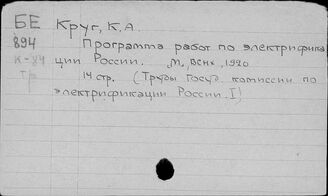 БЕ Круг, К.А.
894 Программа работ по электрифика
К-84 ции России. М, ВСНХ, 1920
Тр 14 стр. (Труды Госуд. комиссии по
электрификации России. I)